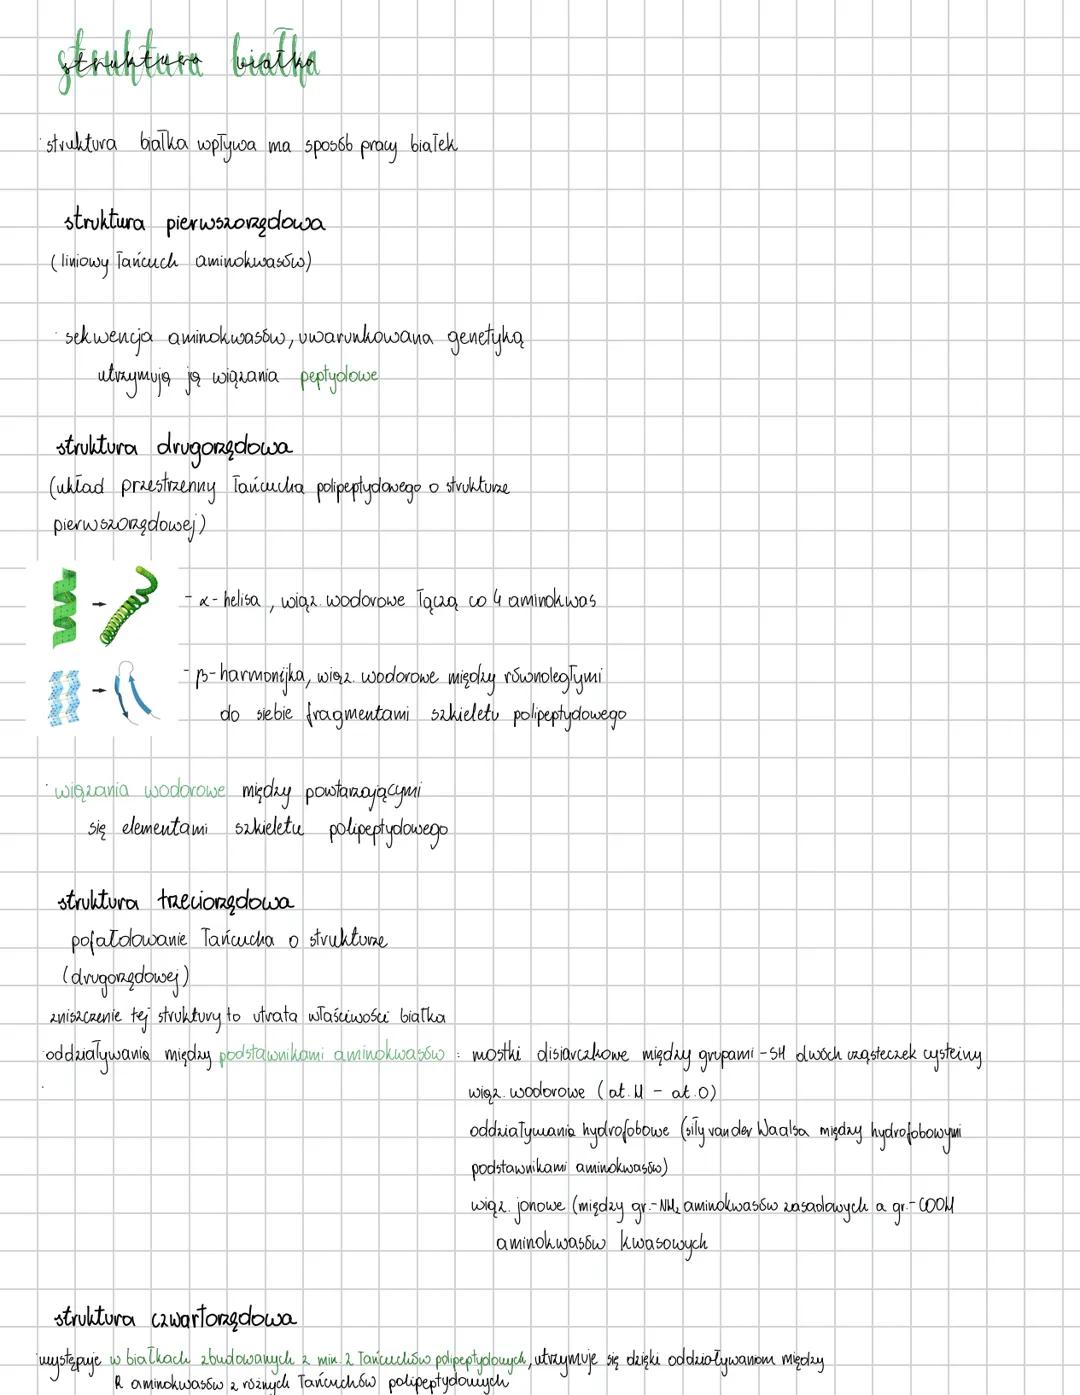 struktura białka
struktura białka wpływa ma sposób pracy białek
struktura pierwszorzędowa
(liniowy łańcuch aminokwasów)
· sekwencja aminokwasów, uwarunkowana genetyką
utrzymują ją wiązania peptydowe
struktura drugorzędowa
(układ przestrzenny łańcucha polipeptydowego o strukturze
pierwszorzędowej)
- α-helisa, wiąz. wodorowe łączą co 4 aminokwas
- β-harmonijka, wiąz. wodorowe między równoległymi
do siebie fragmentami szkieletu polipeptydowego
· wiązania wodorowe między powtarzającymi
się elementami szkieletu polipeptydowego
struktura trzeciorzędowa
pofałdowanie łańcucha o strukturze
(drugorzędowej)
zniszczenie tej struktury to utrata właściwości białka
· oddziaływania między podstawnikami aminokwasów : mostki disiarczkowe między grupami -SH dwóch cząsteczek cysteiny
wiąz. wodorowe (at. H - at. O)
oddziaływania hydrofobowe (siły van der Waalsa między hydrofobowymi
podstawnikami aminokwasów)
wiąz. jonowe (między gr. -NH₂ aminokwasów zasadowych a gr. -COOH
aminokwasów kwasowych
struktura czwartorzędowa
· występuje w białkach zbudowanych z min. 2 łańcuchów polipeptydowych, utrzymuje się dzięki oddziaływaniom między
R aminokwasów z różnych łańcuchów polipeptydowych